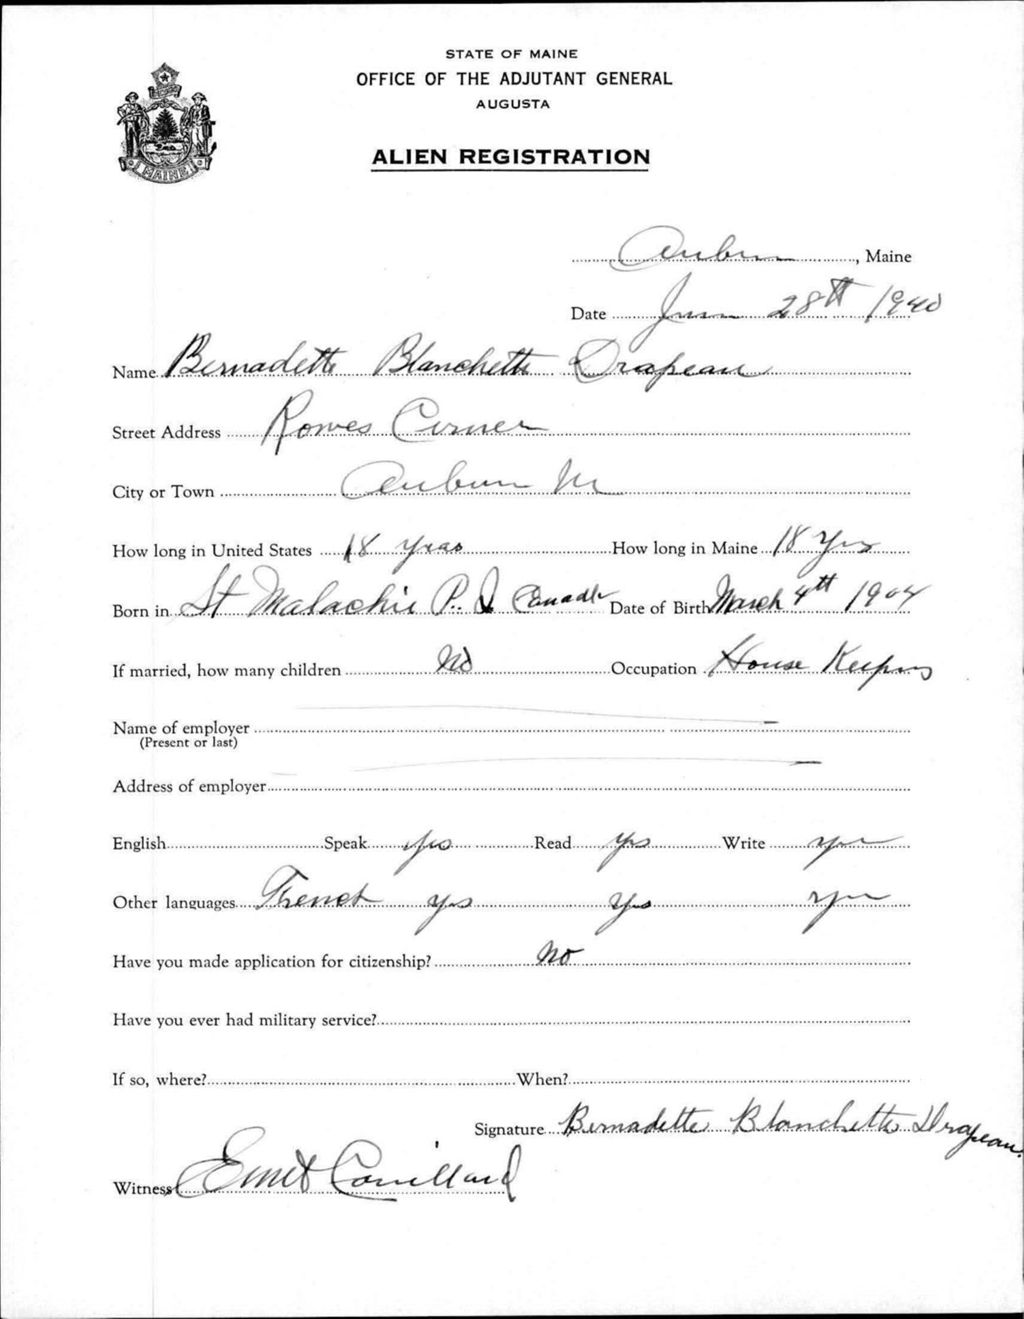 STATE OF MAINE
OFFICE OF THE ADJUTANT GENERAL
AUGUSTA
ALIEN REGISTRATION
MAINE
Auburn, Maine
Date June 28th 1940
Name Bernadette Blanchette Drapeau
Street Address Rowes Corner
City or Town Auburn Me
How long in United States 18 years How long in Maine 18 Yrs
Born in St Malachie P. Q Canada Date of Birth March 4th 1904
If married, how many children No Occupation House Keeping
Name of employer
(Present or last)
Address of employer
English Speak yes Read yes Write yes
Other languages French yes yes yes
Have you made application for citizenship? No
Have you ever had military service?
If so, where? When?
Signature Bernadette Blanchette Drapeau
Witness Couillard